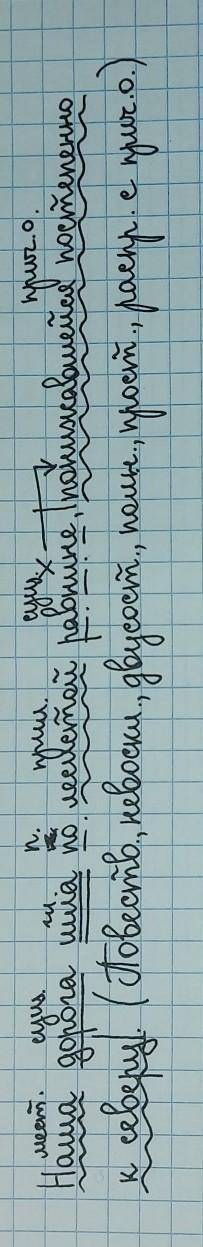 мест. сущ. гл. п. прил. сущ. прич.о.
Наша дорога шла по лесистой равнине, понижавшейся постепенно
к северу. (Повеств., невоскл., двусост., полн., прост., распр. с прич.о.)